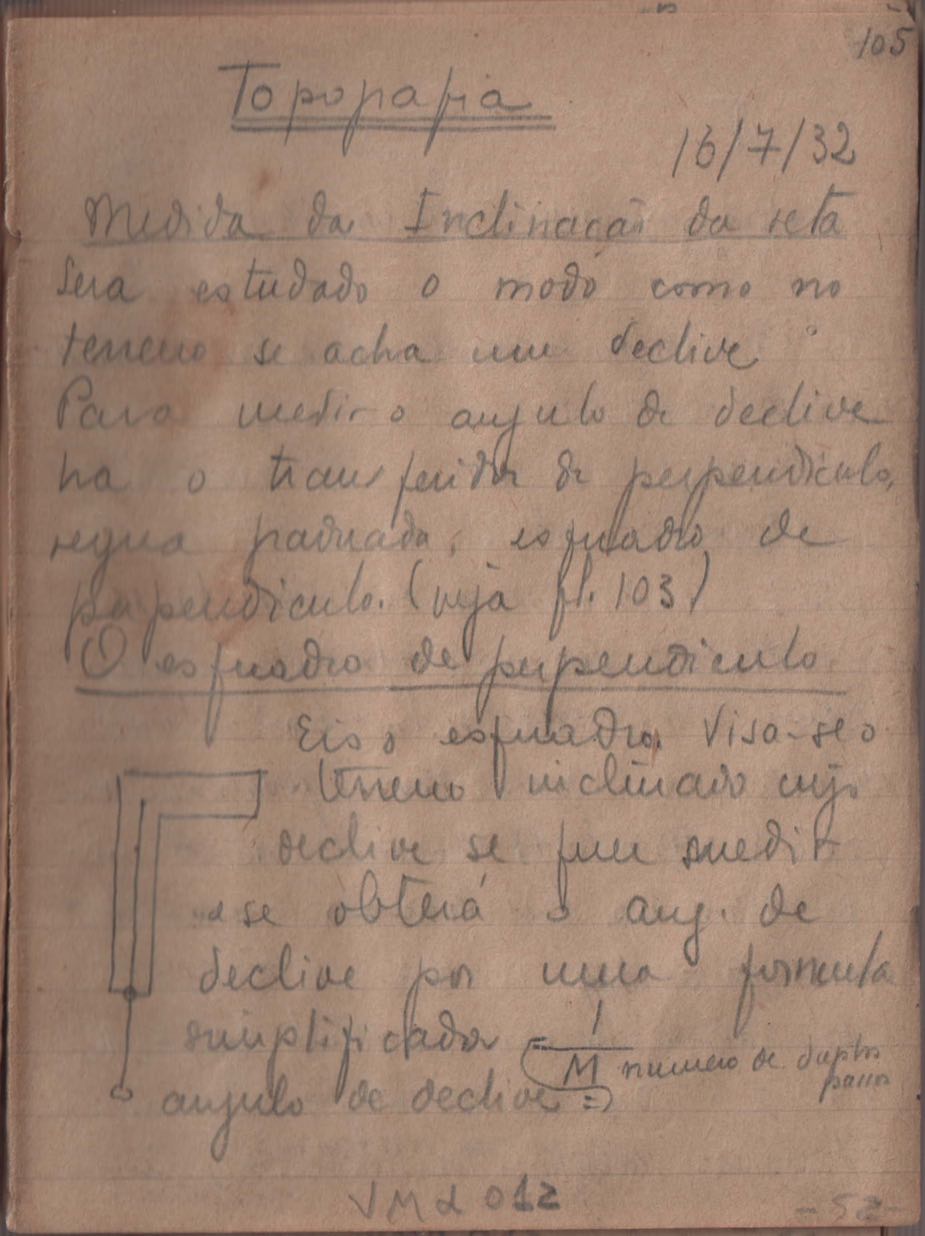 105
Topografia
16/7/32
Medida da Inclinação da reta
Sera estudado o modo como no
terreno se acha um declive
Para medir o angulo de declive
ha o transferidor de perpendiculo,
regua graduada, esquadro de
perpendiculo. (veja fl. 103)
O esquadro de perpendiculo
Eis o esquadro. Visa-se o
terreno inclinado cujo
declive se quer medir
e se obterá o ang. de
declive por uma formula
simplificada = 1
M numero de duplos
passos
angulo de declive =
VM 012
-52-